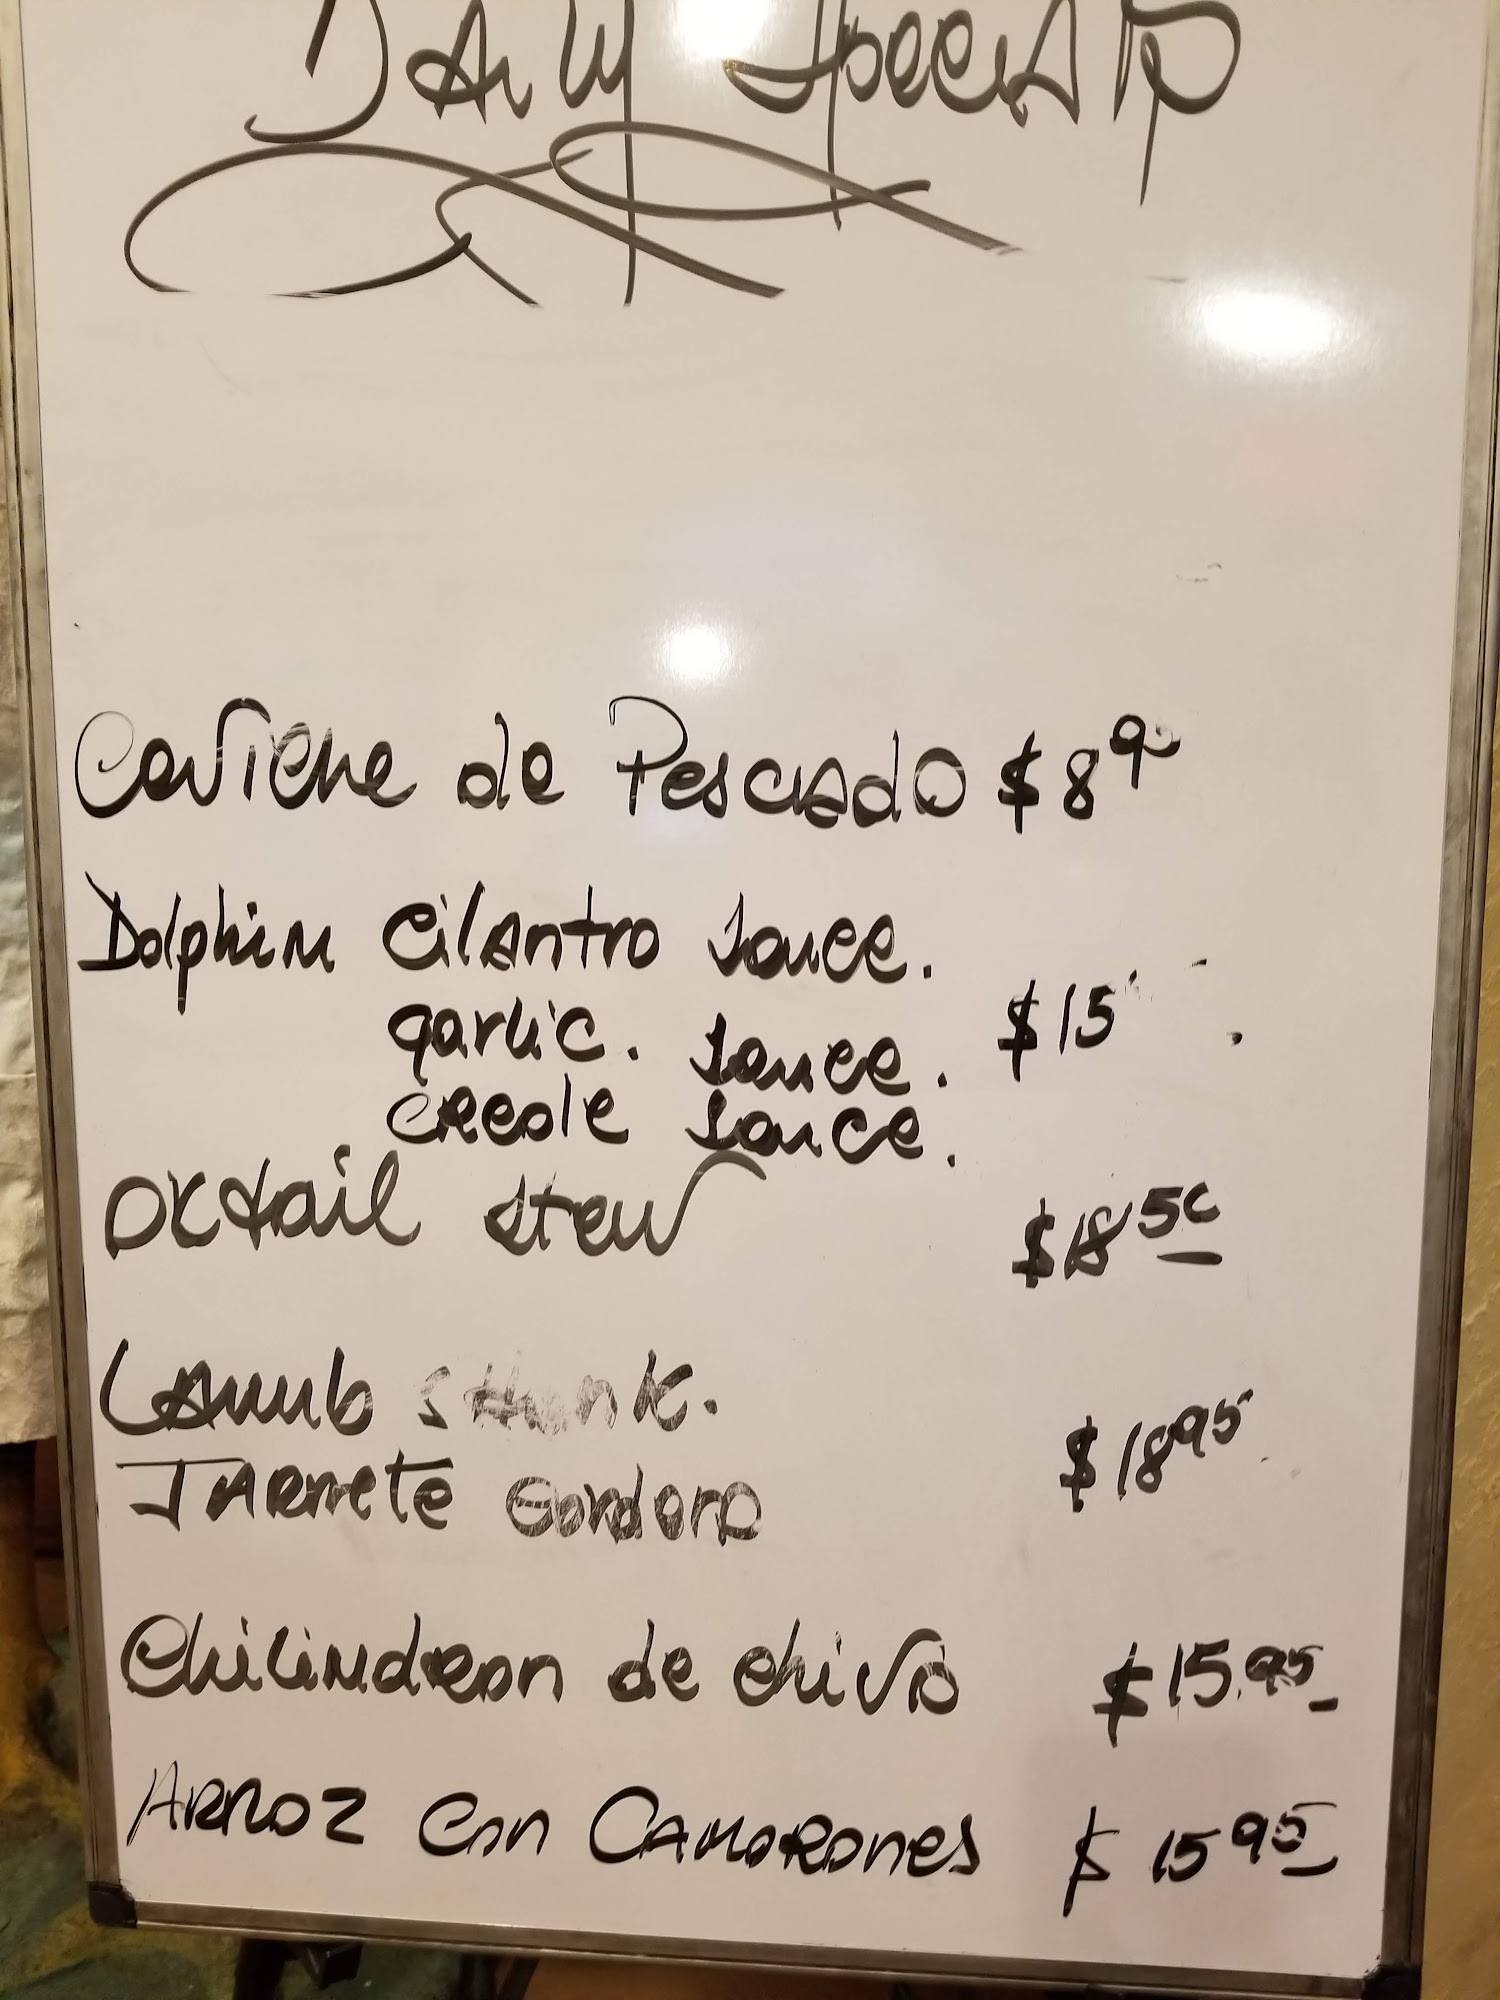 Daily Specials
Ceviche de Pescado $8 9
Dolphin Cilantro Sauce.
garlic. Sauce. $15
creole Sauce.
Oxtail Stew $18 50
Lamb Shank.
Jarrete Gordoro $18 95
Chilindron de chivo $15.95
Arroz con Camorones $15 95